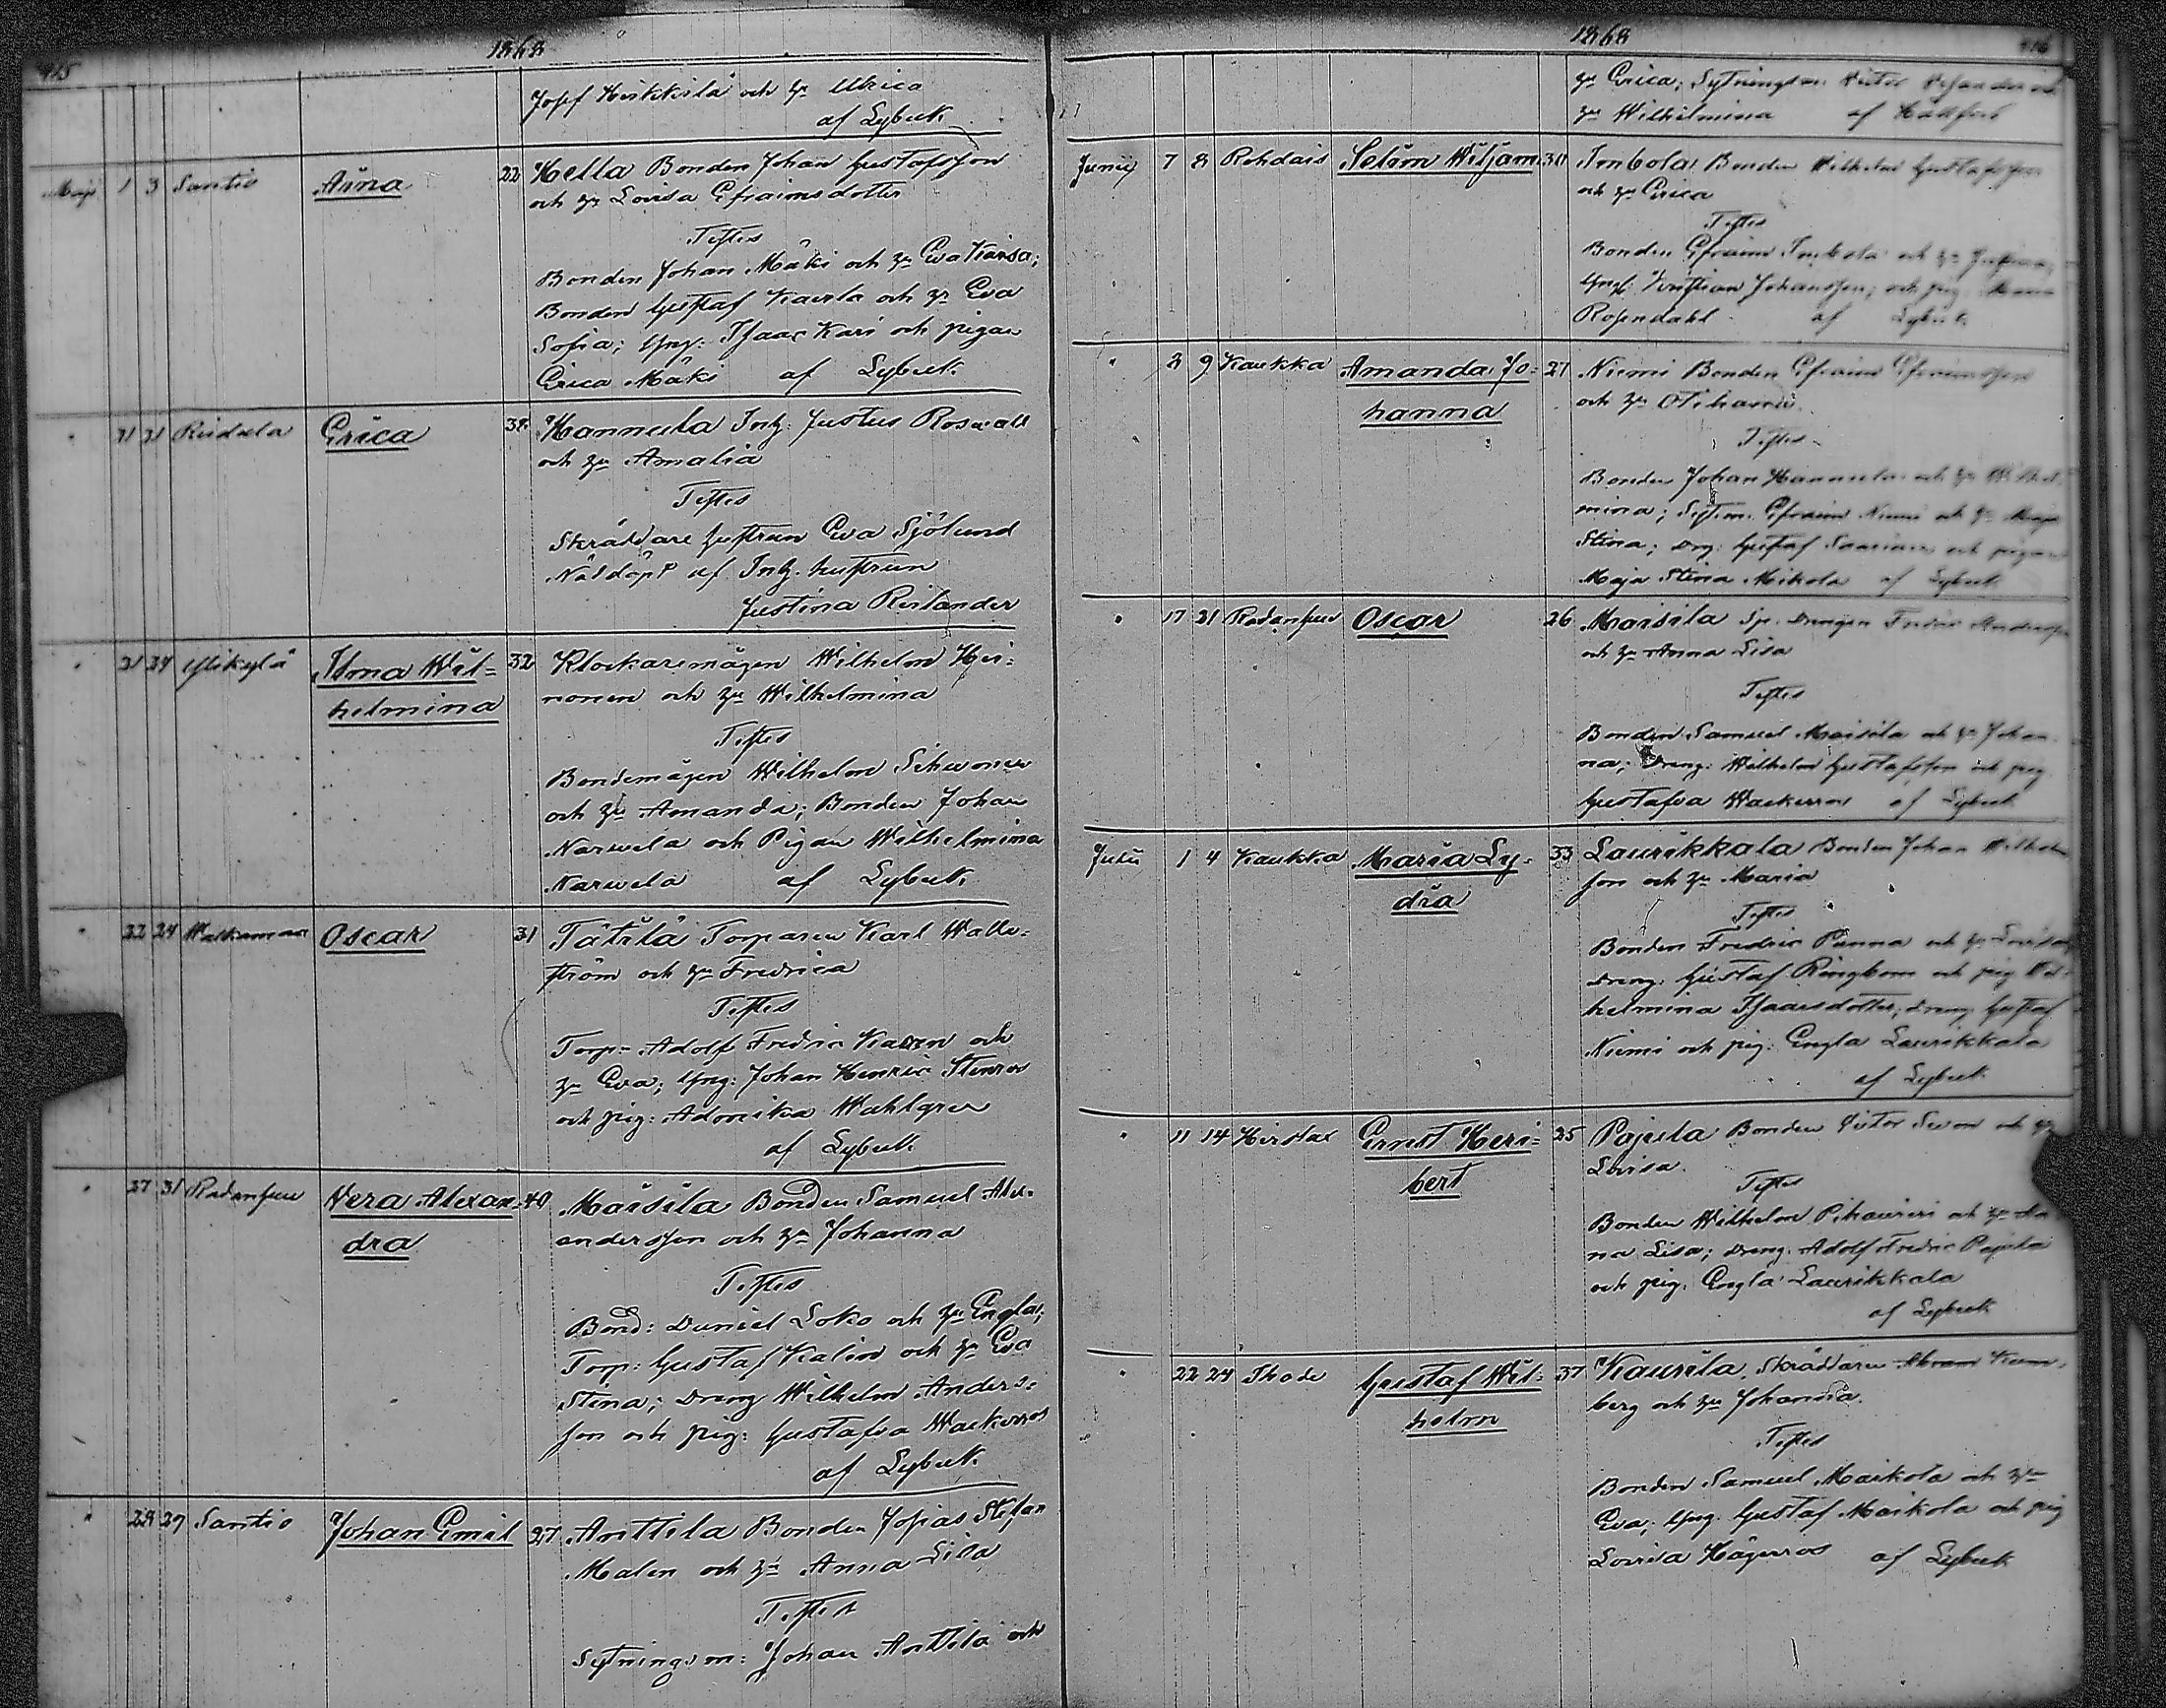 415
1868
Josef Heikkilä och hu Ulrica
af Lybeck
Maji 1 3 Santio Aina 22 Hella Bonden Johan Gustafsson
och hu Lovisa Efraimsdotter
Testes
Bonden Johan Mäki och hu Eva Kaisa;
Bonden Gustaf Kaurla och hu Eva
Sofia; Yng: Isaac Kari och pigan
Erica Mäki af Lybeck.
" 31 Erica 38 Hannula Inh. Justus Roswall
och hu Amalia
Testes
Skräddare hustrun Eva Sjölund
Nöddöpt af Inh. hustrun
Justina Reilander
" Ylikylä Alma Wil=
helmina 32 Klockaremågen Wilhelm Hei=
nonen och hu Wilhelmina
Testes
Bondemågen Wilhelm Sihvonen
och hu Amanda; Bonden Johan
Narvela och Pigan Wilhelmina
Narvela af Lybeck.
" 22 24 Oscar 31 Tätilä Torparen Karl Walle=
ström och hu Fredrica
Testes
Torp= Adolf Fredric Kaven och
hu Eva; Yng: Johan Henric Stenros
och pig: Adamika Wahlgren
af Lybeck.
" 27 31 Radansuu Vera Alexan=
dra 40 Maisila Bonden Samuel Alex=
andersson och hu Johanna
Testes
Bond: Daniel Soko och hu Engla;
Torp: Gustaf Kalin och hu Eva
Stina; Dreng Wilhelm Anders=
son och pig: Gustafva Wackerros
af Lybeck.
" 28 29 Santio Johan Emil 27 Anttila Bonden Josias Stefan
Malen och hu Anna Lisa
Testes
Sytningsm: Johan Anttila och
1868
416
hu Erica; Sytningsm.
hu Wilhelmina af
Junii 7 8 Rohdais Selim Wiljam 30 Imbola Bonden Wilhelm Gustafsson
och hu Erica
Testes
Bonden Efraim Imbola och hu
Yng: Kristian Johansson; och pig.
Rosendahl af Lybeck
" 8 9 Kaukka Amanda Jo=
hanna 27 Niemi Bonden Efraim Efraimsson
och hu Othana.
Testes
Bonden Johan Hannula och hu Wilhel
mina; Sytn. Efraim Niemi och hu Maja
Stina; Drg: Gustaf och pigan
Maja Stina Mikola af Lybeck
" 17 21 Radansuu Oscar 26 Maisila Sp. Drengen Fredric Andersson
och hu Anna Lisa
Testes
Bonden Samuel Maisila och hu Johan
na; Dreng: Wilhelm Gustafsson och pig
Gustafva Wackerros af Lybeck
Julii 1 4 Kaukka Maria Ly=
dia 33 Laurikkala Bonden Johan Wilhelm
son och hu Maria
Testes
Bonden Fredric Punna och hu Lovisa
Dreng: Gustaf Ringbom och pig Wil=
helmina Isaacsdotter; Dreng Gustaf
Niemi och pig: Engla Laurikkala
af Lybeck
" 11 14 Ernst Heri=
bert 25 Pajula Bonden Victor och hu
Lovisa.
Testes
Bonden Wilhelm och hu An
na Lisa; Dreng. Adolf Fredric Pajula
och pig. Engla Laurikkala
af Lybeck
" 22 24 Gustaf Wil=
helm 37 Kaurila, Skräddaren Abram
berg och hu Johanna.
Testes
Bonden Samuel Maikola och hu
Eva; Yng. Gustaf Maikola och pig
Lovisa Hägerros af Lybeck